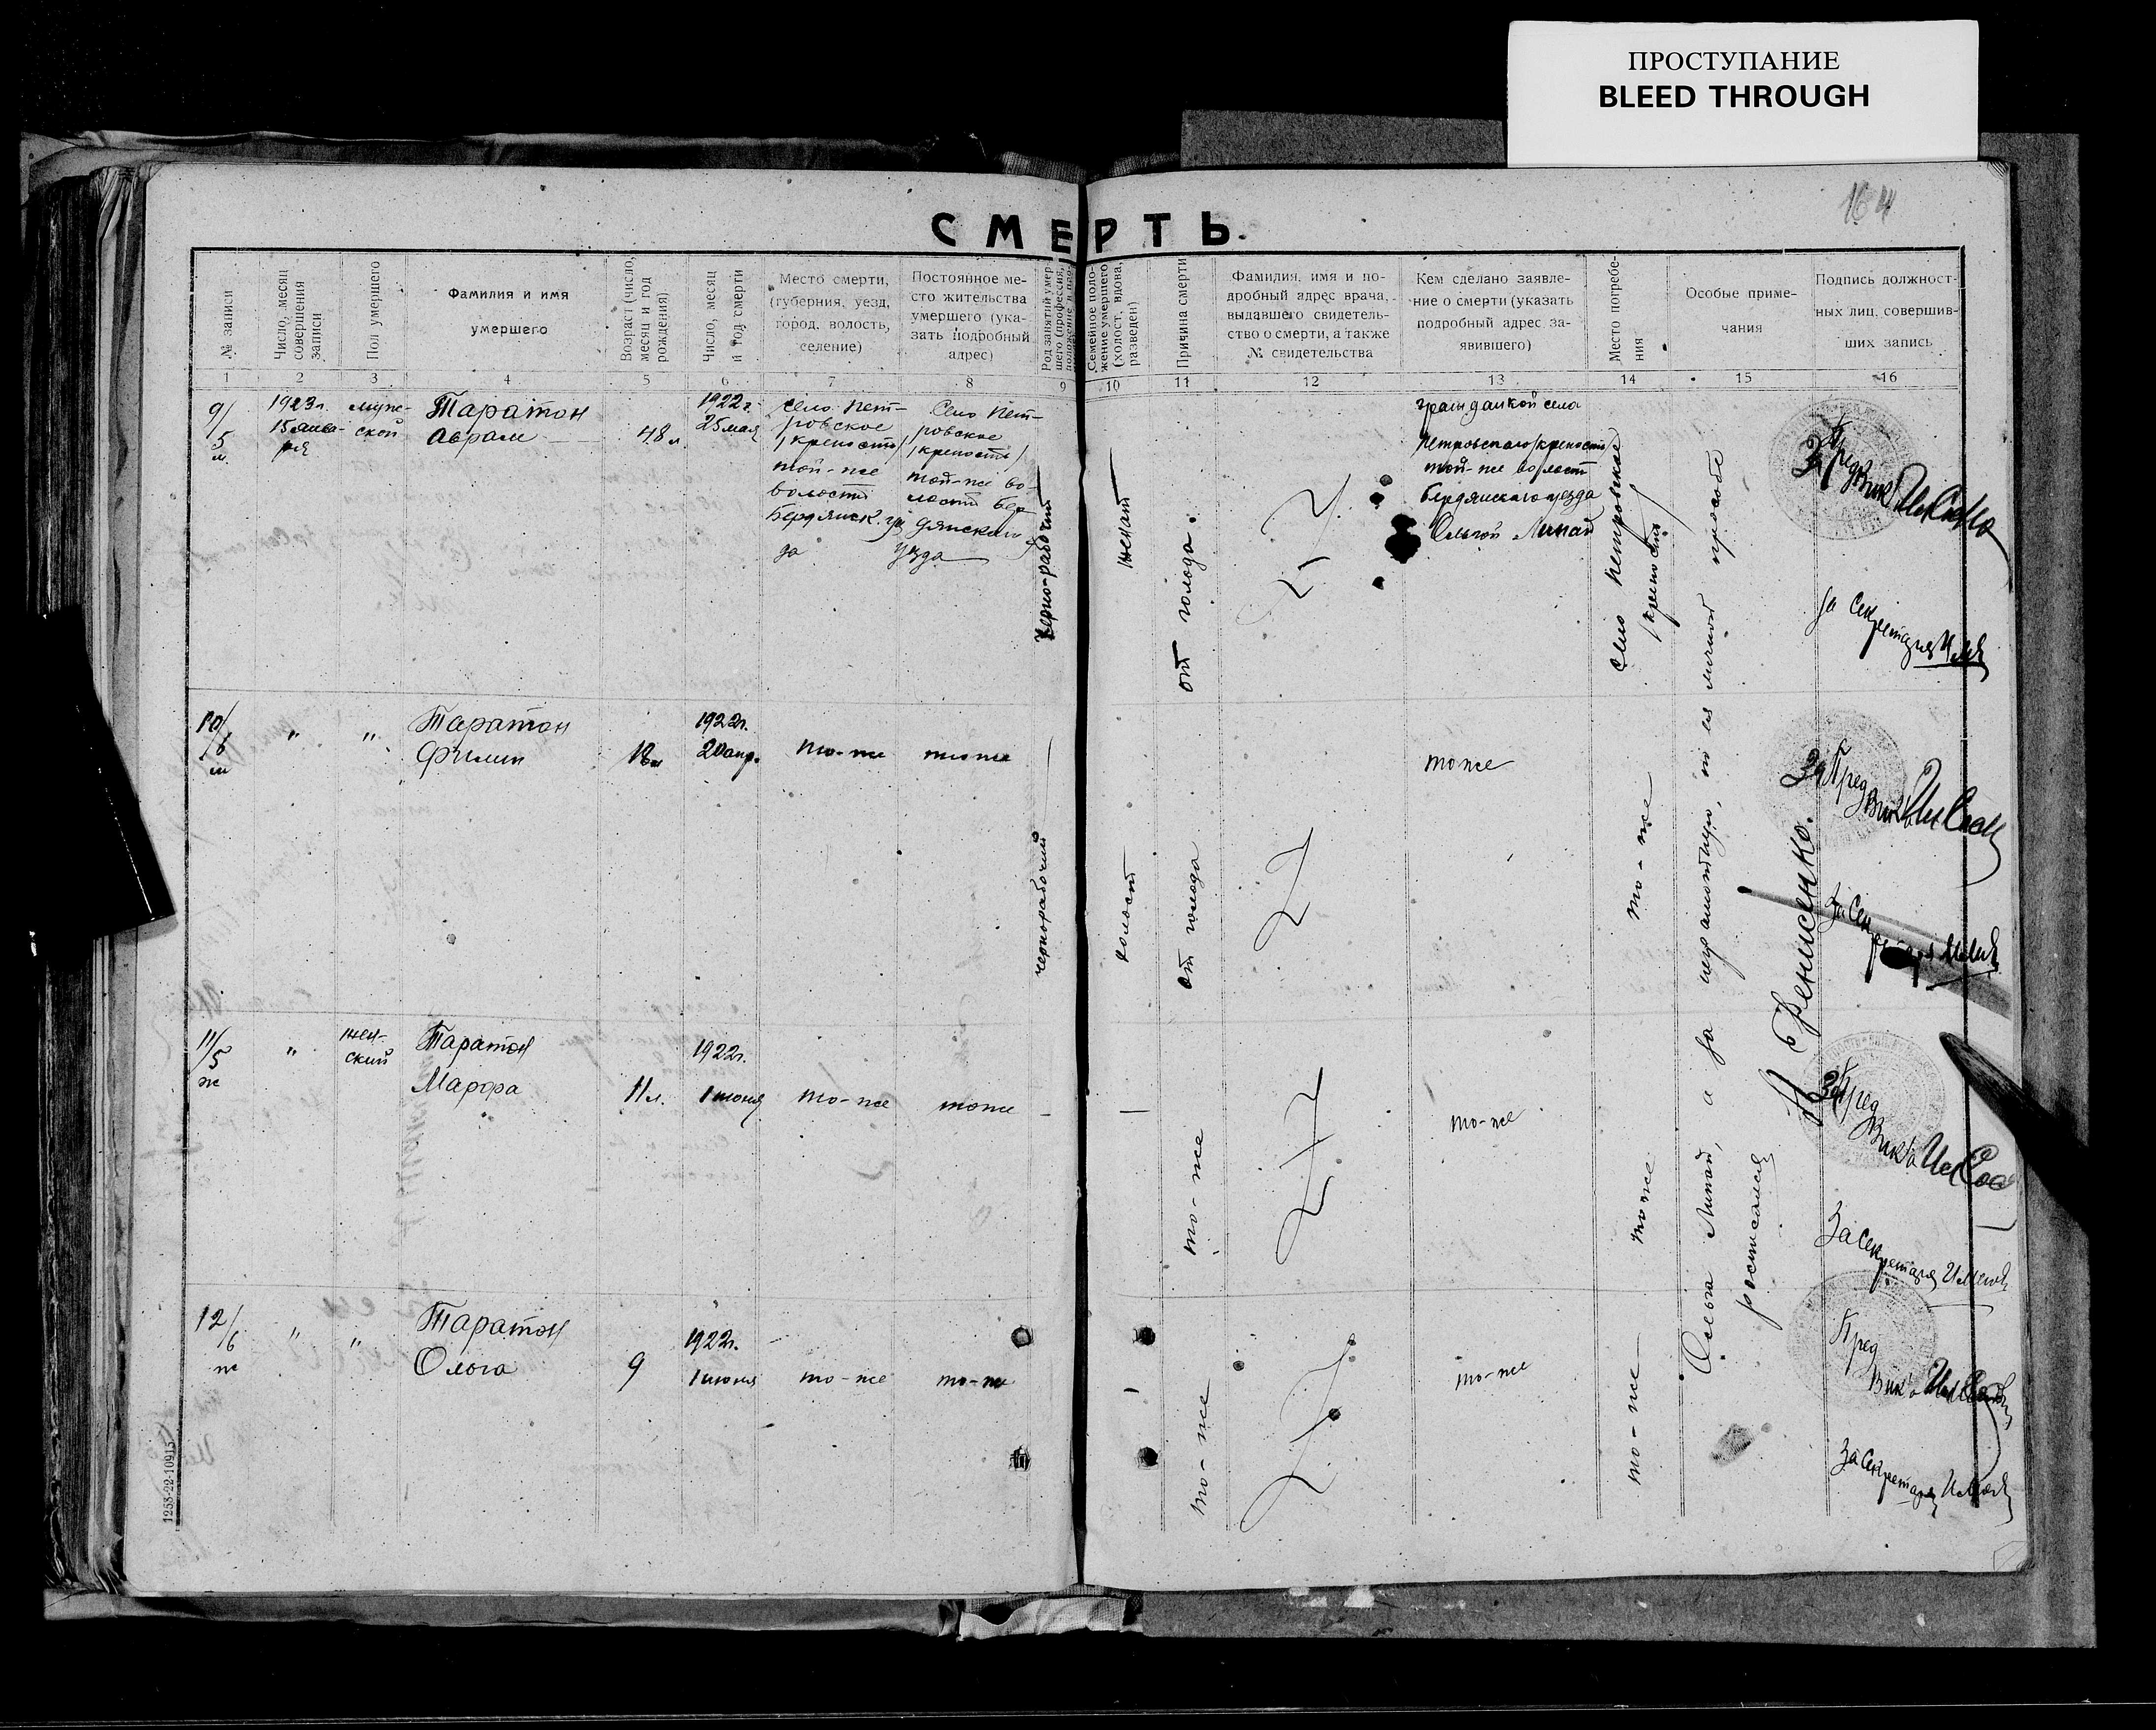 ПРОСТУПАНИЕ
BLEED THROUGH
164
СМЕРТЬ.
№ записи
Число, месяц
совершения
записи
Пол умершего
Фамилия и имя
умершего
Возраст (число,
месяц и год
рождения)
Число, месяц
и год смерти
Место смерти,
(губерния, уезд,
город, волость,
селение)
Постоянное ме-
сто жительства
умершего (ука-
зать подробный
адрес)
Род занятий умер-
шего (профессия,
Семейное поло-
жение умершего
(холост, вдова,
разведен)
Причина смерти
Фамилия, имя и по-
дробный адрес врача,
выдавшего свидетель-
ство о смерти, а также
№ свидетельства
Кем сделано заявле-
ние о смерти (указать
подробный адрес за-
явившего)
Место погребе-
ния
Особые приме-
чания
Подпись должност-
ных лиц, совершив-
ших запись
1 2 3 4 5 6 7 8 9 10 11 12 13 14 15 16
9/5
м
1923г.
15 янва-
ря
муже-
ской
Таратон
Аврам
48 л
1922г.
25 мая
село Пет-
ровское
/крепость/
той-же
волости
Бердянск. уез
да
Село Пет-
ровское
/крепость/
той-же во-
лости Бер-
дянского
уезда
черно-рабочий
женат
от голода.
гражданкой села
Петровского/крепость/
той-же волости
Бердянского уезда
Ольгой Липай
село Петровское
/крепость/
За Пред
Вик
За Секретаря
10/6
м
"
"
Таратон
Филип
18 л
1922г.
20 апр.
то-же
тоже
чернорабочий
холост
от голода
тоже
то-же
За Пред
Вик
За Секретаря
11/5
ж
"
жен-
ский
Таратон
Марфа
11 л.
1922г.
1 июня
то-же
тоже
—
то-же
то-же
тоже
За Пред
Вик
За Секретаря
12/6
ж
"
"
Таратон
Ольга
9
1922г.
1 июня
то-же
то-же
—
то-же
то-же
то-же
Ольга Липай, а за неграмотную, по ея личной просьбе
росписался
Пред
Вик
За Секретаря
1253-22-10915